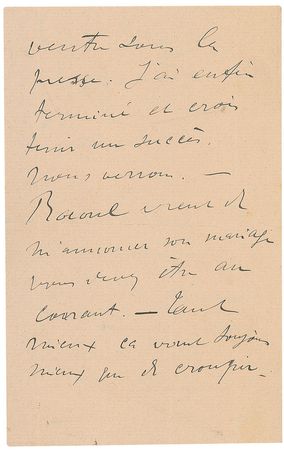 ventre sous la
presse. J'ai enfin
terminé et crois
tenir un succès.
Nous verrons. —
Raoul vient de
m'annoncer son mariage
vous devez être au
courant. — Tant
mieux ça vaut toujours
mieux que de croupir.